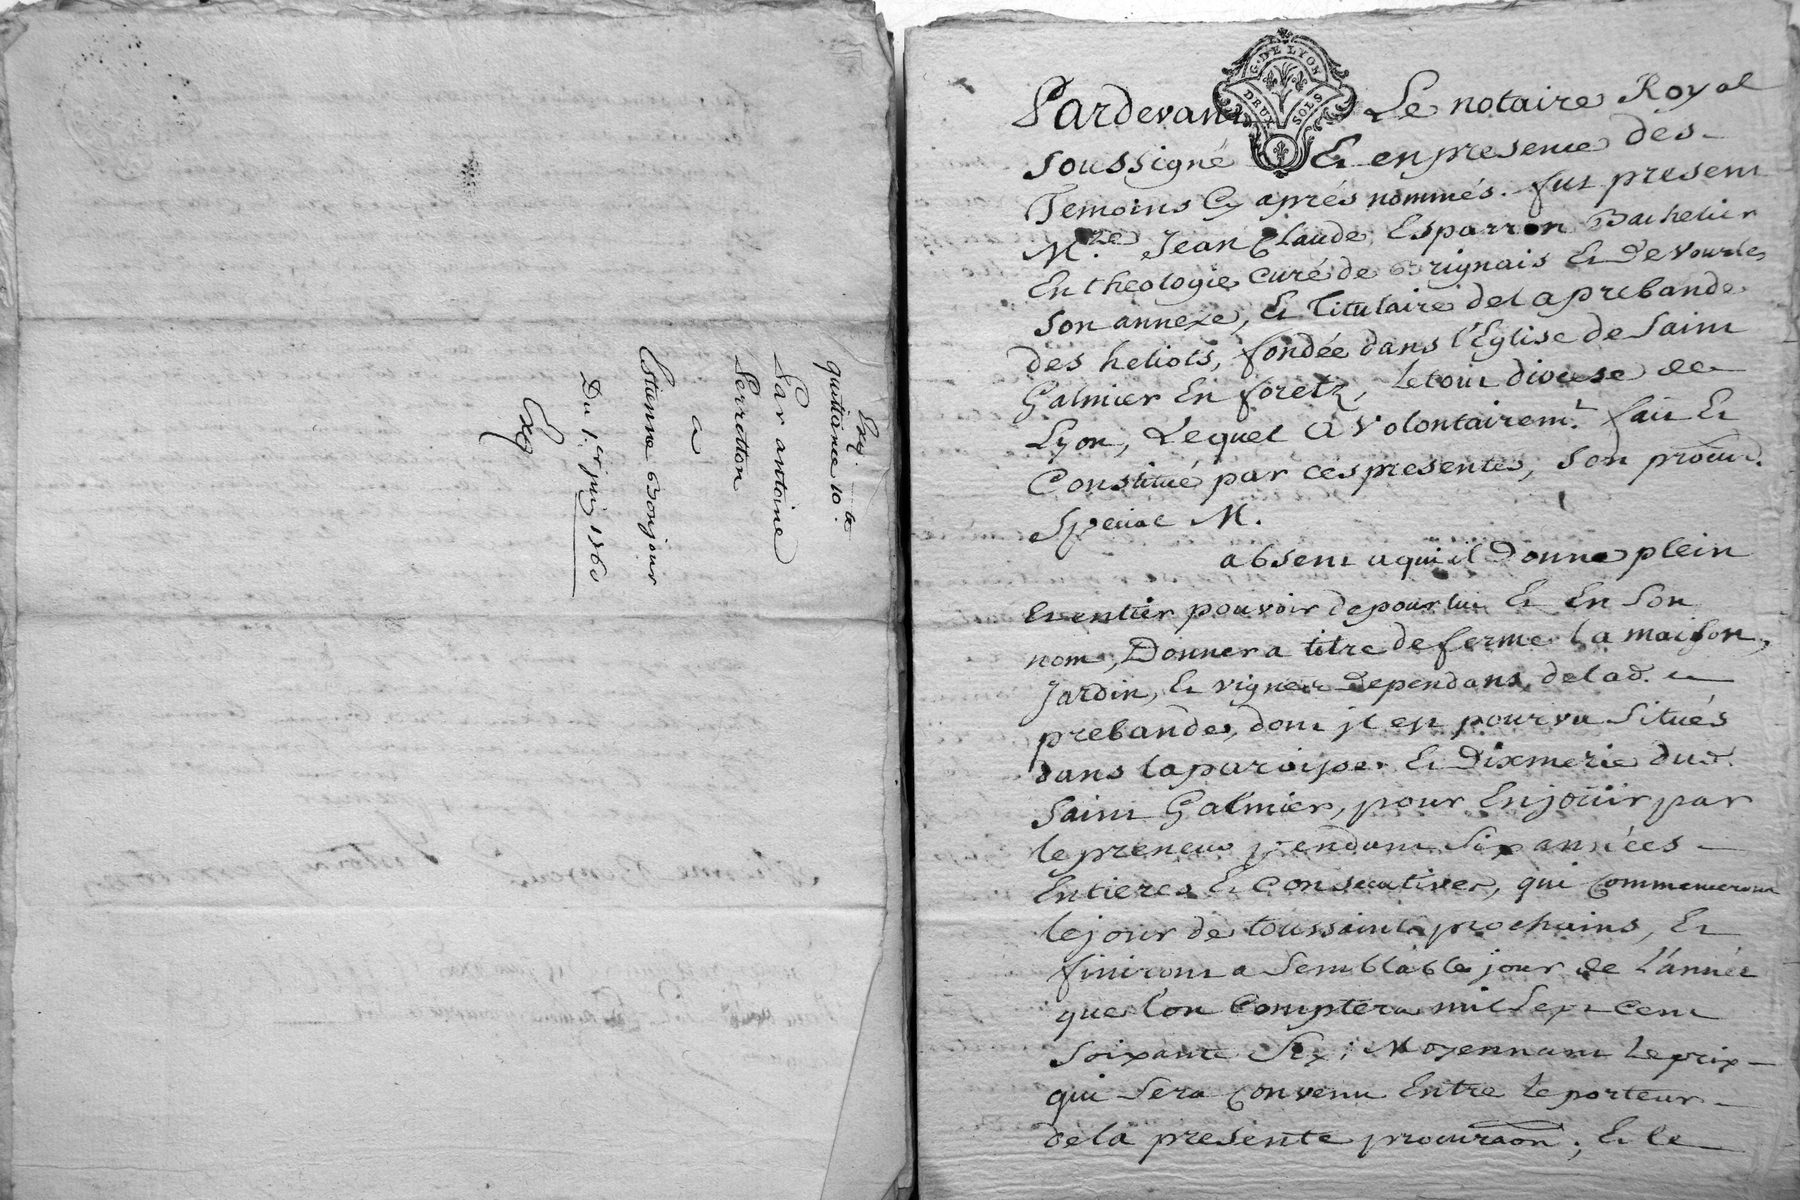 Exq.
quittance 10.te
Par antoine
Perretton
a
Estienne Bonjour
Du 1.er juin 1760
Exq
G. DE LYON
DEUX SOLS
Pardevant Le notaire Royal
soussigné Et en presence des
Temoins Cy aprés nommés. fut present
M.re Jean Claude Esparron Bachelier
En theologie, curé de Brignais Et De Vourles
son annexe, Et Titulaire de la prebande
des heliots, fondée dans l'Eglise de Saint
Galmier En foretz, letout diocese de
Lyon, Lequel a volontairem.t fait Et
Constitué par ces presentes, son procur.
Special M.
absent aquil Donne plein
Et entier pouvoir de pour lui Et En Son
nom, Donner a titre de ferme la maison,
Jardin, Et vignes Dependans de lad.
prebande, dont il est pourvu Situés
dans la paroisse Et Dixmerie dud.
Saint Galmier, pour En joüir par
le preneur pendant Six années
Entieres Et Consecutives, qui Commenceront
le jour de toussaint prochains, Et
finiront a Semblable jour de l'année
que l'on Comptera mil Sept cent
Soixante Six; Moyennant le prix
qui Sera Convenu Entre le porteur
de la presente procuraon, Et le